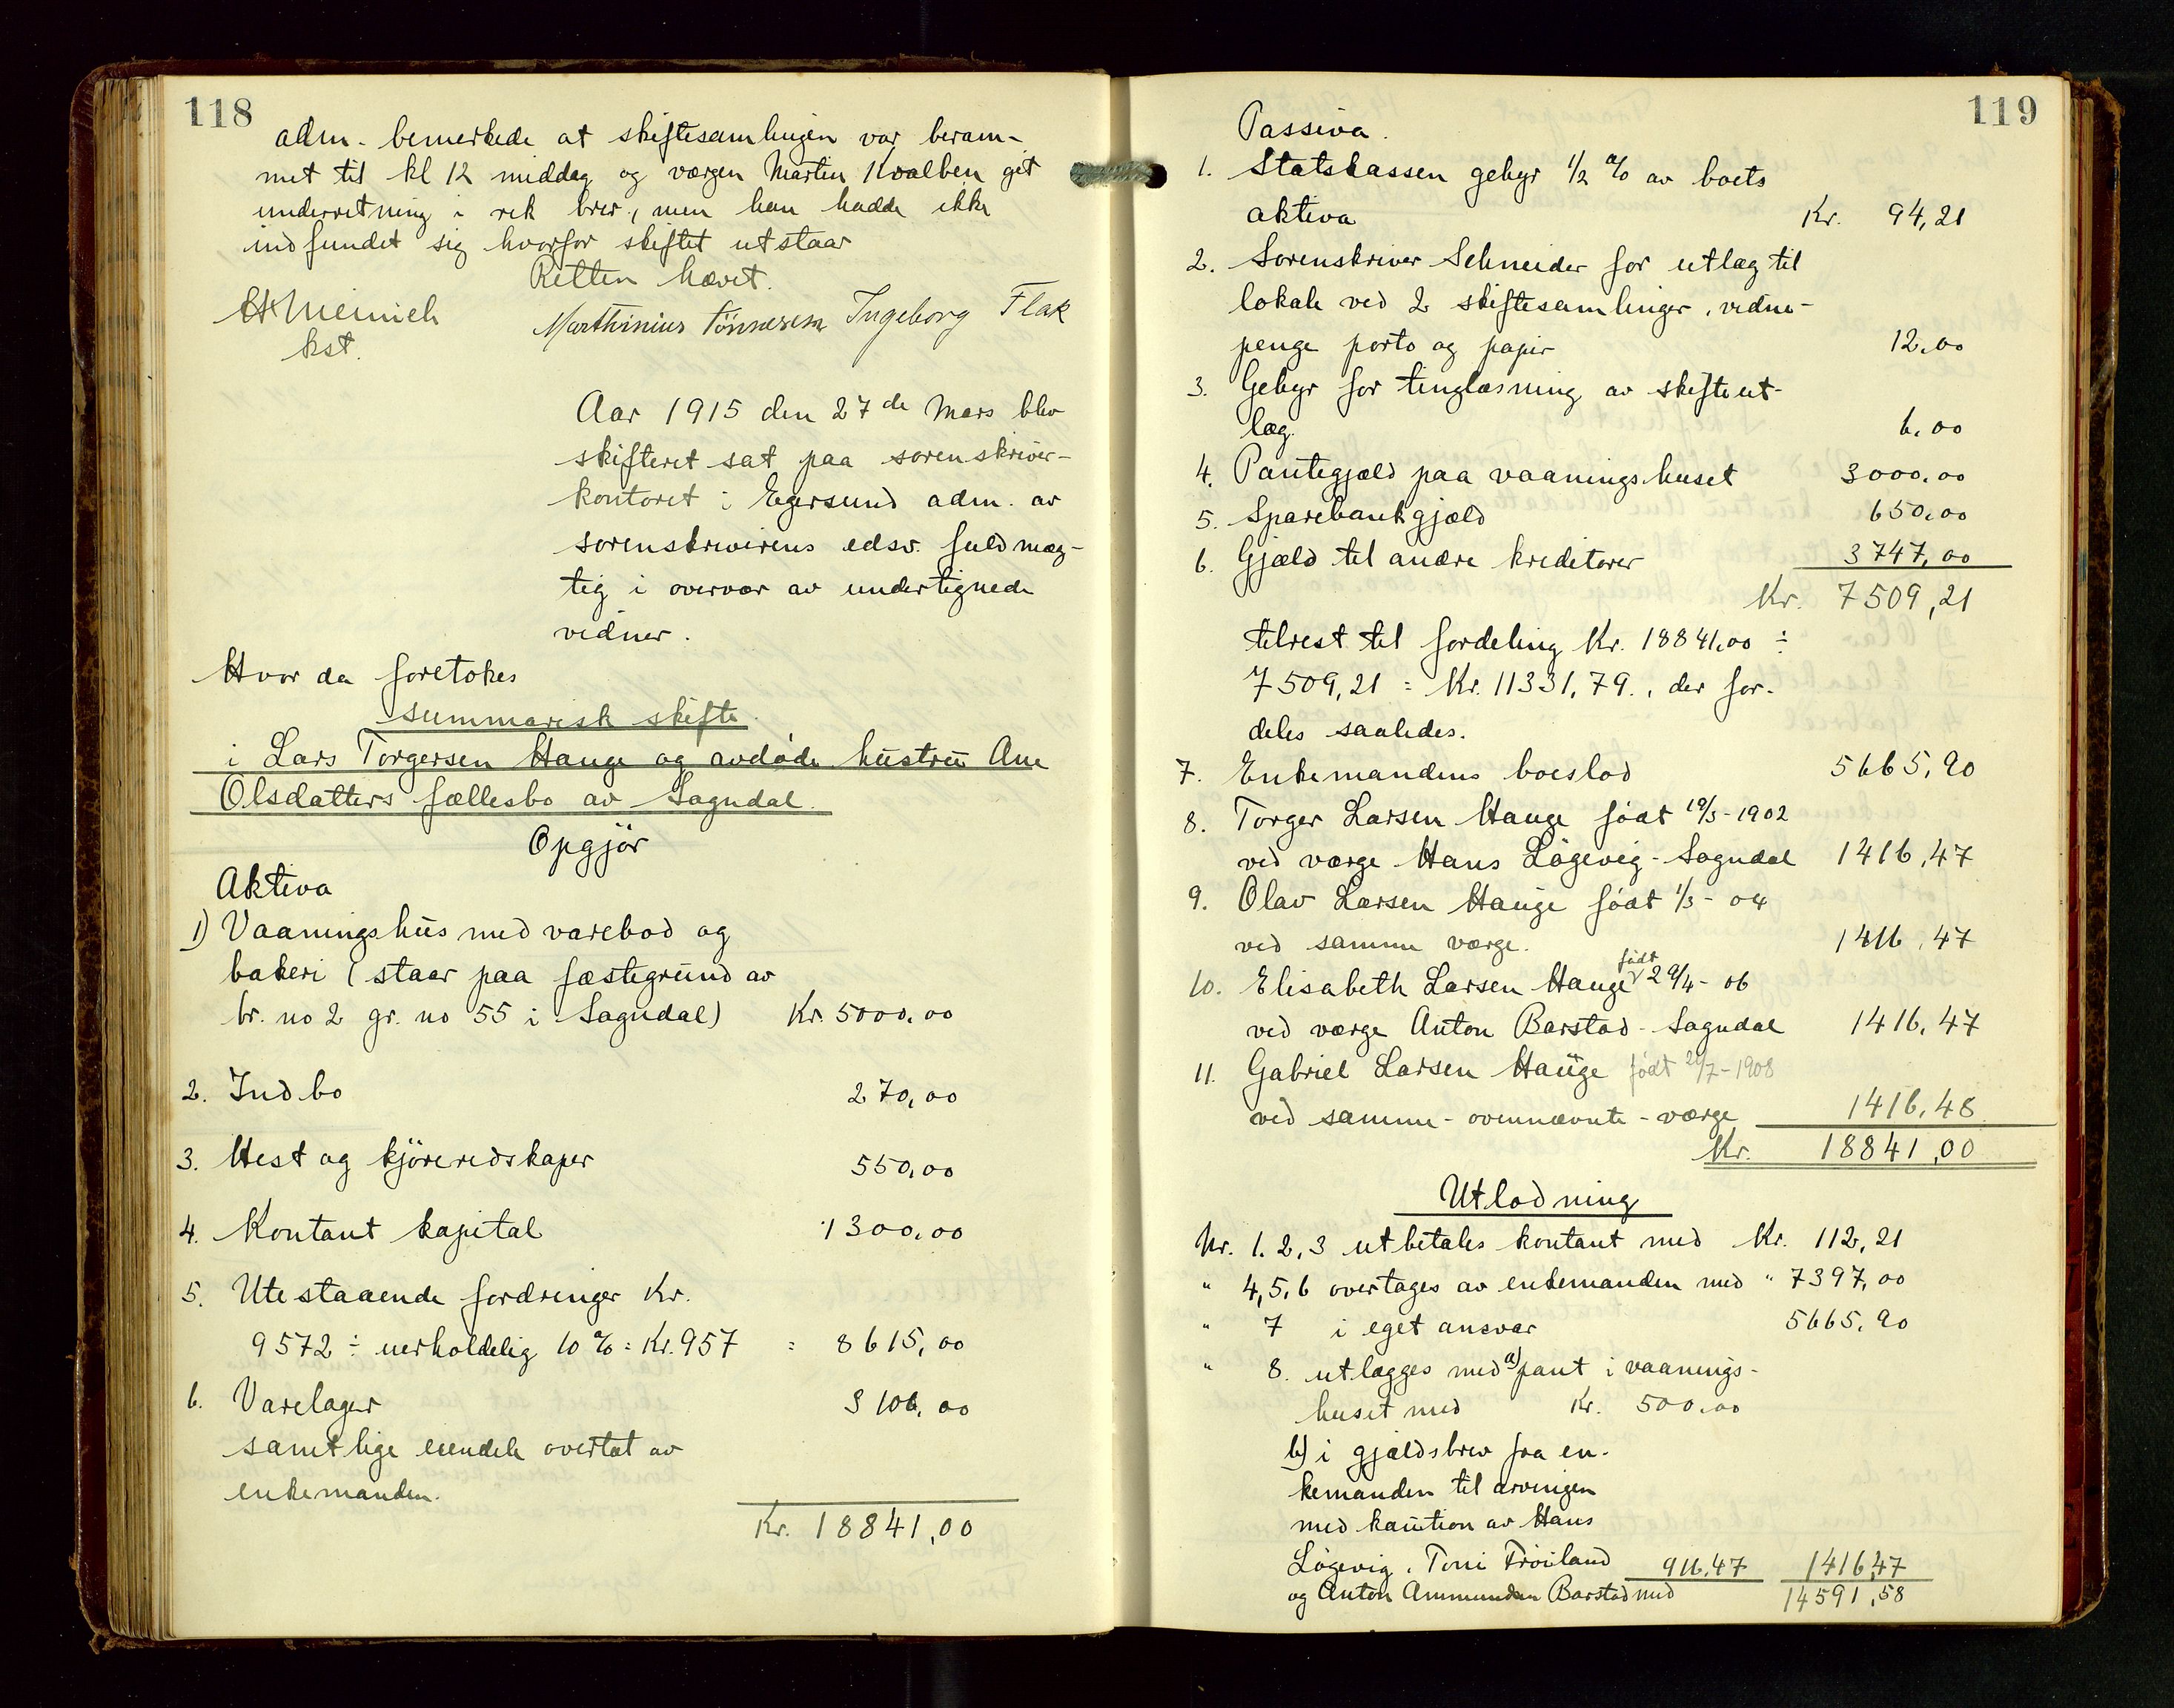 118
adm. bemerkede at skiftesamlingen var beram-
met til kl 12 middag og værgen Martin Kvalben git
underretning i rek brev, men han hadde ikke
indfundet sig hvorfor skiftet utstaar
Retten hævet.
kst.
Marthinius Tönnesen Ingeborg Flak
Aar 1915 den 27de Mars blev
skifteret sat paa sorenskriver-
kontoret i Egersund adm. av
sorenskriverens edsv. fuldmæg-
tig i overvær av undertegnede
vidner.
Hvor da foretokes
summarisk skifte
i Lars Torgersen Hauge og avdøde hustru Ane
Olsdatters fællesbo av Sogndal.
Opgjör
Aktiva
1) Vaaningshus med varebod og
bakeri (staar paa fæstegrund av
br. no 2 gr. no 55 i Sogndal) Kr. 5000,00
2. Indbo 270,00
3. Hest og kjöreredskaper 550,00
4. Kontant kapital 1300,00
5. Utestaaende fordringer Kr.
9572 ÷ uerholdelig 10 % = Kr. 957 = 8615,00
6. Varelager 3106,00
samtlige eiendele overtat av
enkemanden.
Kr. 18841,00
119
Passiva.
1. Statskassen gebyr 1/2 % av boets
aktiva Kr. 94,21
2. Sorenskriver Schneider for utlæg til
lokale ved 2 skiftesamlinger, vidne-
penge porto og papir 12,00
3. Gebyr for tinglæsning av skifteut-
læg. 6,00
4. Pantegjæld paa vaaningshuset 3000,00
5. Sparebankgjæld 650,00
6. Gjæld til andre kreditorer 3747,00
Kr. 7509,21
tilrest til fordeling Kr. 18841,00 ÷
7509,21 = Kr. 11331,79., der for-
deles saaledes.
7. Enkemandens boeslod 5665,90
8. Torger Larsen Hauge födt 19/3-1902
ved værge Hans Lögevig - Sogndal 1416,47
9. Olav Larsen Hauge födt 1/3 - 04
ved samme værge. 1416,47
10. Elisabeth Larsen Hauge födt 29/4 - 06
ved værge Anton Barstad - Sogndal 1416,47
11. Gabriel Larsen Hauge födt 21/7-1908
ved samme - ovennævnte - værge 1416,48
Kr. 18841,00
Utlodning
Nr. 1. 2, 3 utbetales kontant med Kr. 112,21
" 4, 5, 6 overtages av enkemanden med " 7397,00
" 7 i eget ansvar 5665,90
" 8. utlægges med a) pant i vaanings-
huset med Kr. 500,00
b) i gjældsbrev fra en-
kemanden til arvingen
med kaution av Hans
Lögevig, Toni Fröiland 916,47 1416,47
og Anton Ammundsen Barstad med 14591,58